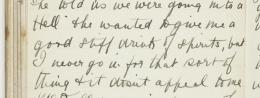 she told as we were going into a
Hell she wanted to give me a
good stiff drink of spirits, but
I never go in for that sort of
thing & it dosn't appeal to me